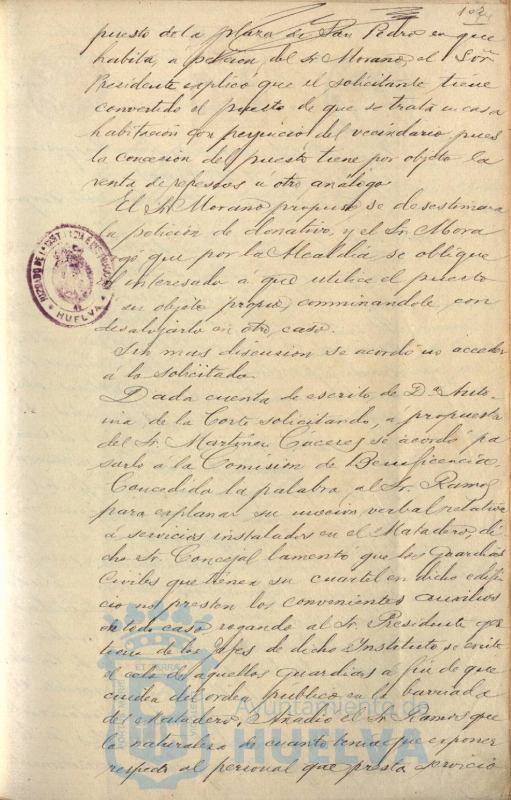 puesto de la plaza de San Pedro en que
habita, a peticion del Sr. Morano, el Sor.
Presidente explicó que el solicitante tiene
convertido el puesto de que se trata en casa
habitacion con perjuicio del vecindario, pues
la concesion del puesto tiene por objeto la
venta de refrescos ú otro análogo.
El Sr. Morano propuso se desestimara
la peticion de donativo, y el Sr. Mora
rogó que por la Alcaldia se obligue
al interesado á que utilice el puesto
en su objeto propio, conminandole con
desalojarlo en otro caso.
Sin mas discusion se acordó no acceder
á lo solicitado.
Dada cuenta de escrito de Da. Anto-
nia de la Corte solicitando, a propuesta
del Sr. Martinez Caceres se acordó pa
sarlo á la Comision de Beneficencia.
Concedida la palabra al Sr. Ramos
para explanar su mocion verbal relativa
á servicios instalados en el Matadero, di-
cho Sr. Concejal lamentó que los Guardias
Civiles que tienen su cuartel en dicho edifi
cio no presten los convenientes auxilios
en todo caso rogando al Sr. Presidente que
de los Jefes de dicho Instituto se excite
el celo de aquellos Guardias a fin de que
cuiden del orden publico en la barriada
del Matadero. Añadio el Sr. Ramos que
la naturaleza de cuanto tenia que exponer
respecto al personal que presta servicio
JUZGADO DE 1ª INSTANCIA E INSTRUCCION
HUELVA
Ayuntamiento de
HUELVA